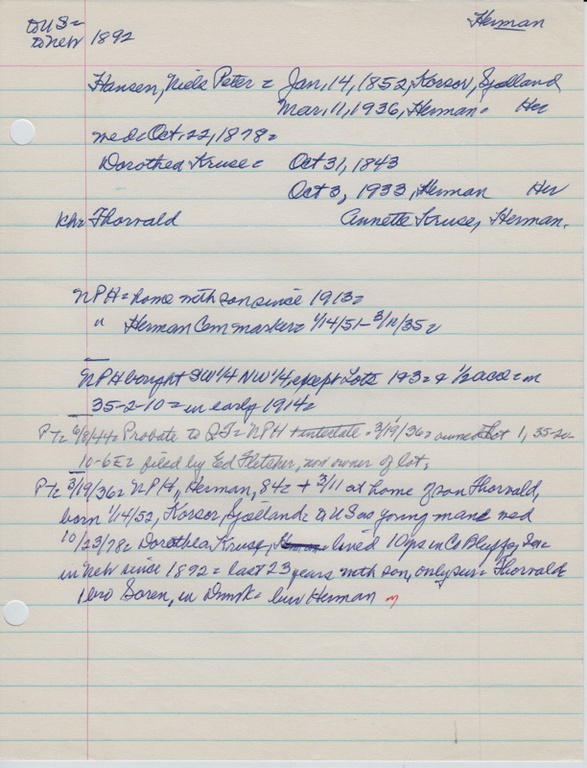 to U S =
to Neb 1892
Herman
Hansen, Niels Peter = Jan. 14, 1852, Korsor, Sjelland
Mar. 11, 1936, Herman = Her
med = Oct. 22, 1878 =
Dorothea Kruse = Oct 31, 1843
Oct 3, 1933, Herman Her
Thorvald Annette Kruse, Herman.
NPH = home with son since 1913 =
" Herman Cem marker = 1/14/51 - 3/10/35 =
NPH bought SW 1/4 NW 1/4, except Lots 1 & 1/2 acre = in
35-2-10 = in early 1914 =
PT = 6/8/44 = Probate to = NPH + intestate = 3/19/36 = owned Lot 1, 35-20-
10-6E = filed by Ed Fletcher, now owner of lot,
PT = 3/19/36 = NPH, Herman, 84 = + 3/11 at home of son Thorvald,
born 1/14/52, Korsor, Sjelland = to US as young man = med
10/23/78 = Dorothea Kruse, lived 10 yrs in Co Bluffs, Ia =
in Neb since 1892 = last 23 years with son, only sur = Thorvald
1 bro Soren, in Dnmk = bur Herman